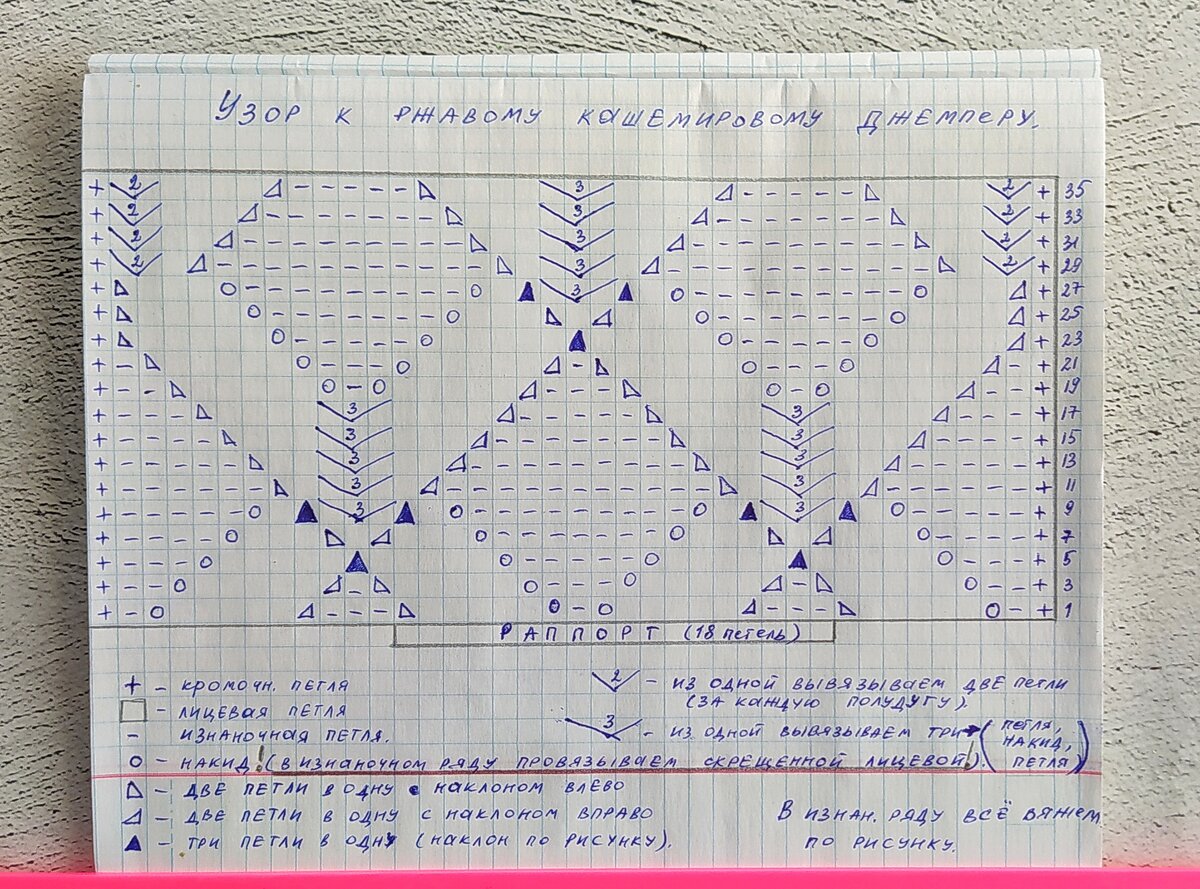 Узор к ржавому кашемировому джемперу.
+ 2 3 2 + 35
+ 2 3 2 + 33
+ 2 3 2 + 31
+ 2 3 2 + 29
+ 3 + 27
+ + 25
+ + 23
+ + 21
+ + 19
+ 3 3 + 17
+ 3 3 + 15
+ 3 3 + 13
+ 3 3 + 11
+ 3 3 + 9
+ + 7
+ + 5
+ + 3
+ + 1
РАППОРТ (18 петель)
+ - кромочн. петля
- лицевая петля
- изнаночная петля.
О - накид! (в изнаночном ряду провязываем скрещенной лицевой!).
- две петли в одну с наклоном влево
- две петли в одну с наклоном вправо
- три петли в одну (наклон по рисунку).
2 - из одной вывязываем две петли
(за каждую полудугу).
3 - из одной вывязываем три (петля, накид, петля)
В изнан. ряду всё вяжем
по рисунку.